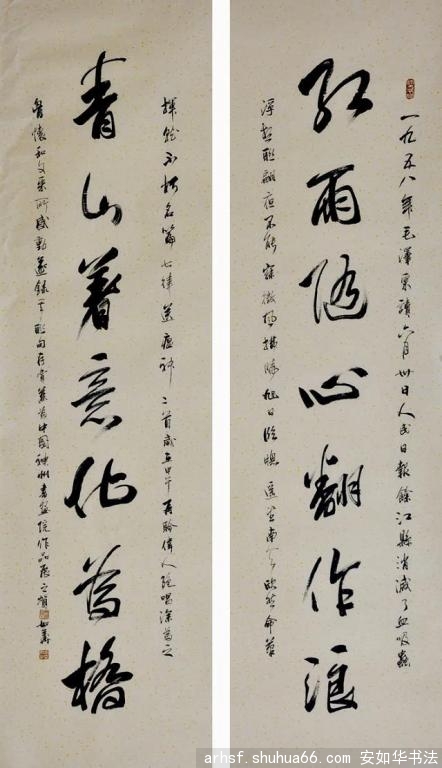 一九五八年毛澤東讀六月卅日人民日報餘江縣消滅了血吸蟲
紅雨隨心翻作浪
浮想聯翩夜不能寐微風拂煦旭日臨窗遥望南天欣然命筆
揮就不朽名篇七律送瘟神二首歲在甲午再吟偉人絕唱深為之
青山著意化為橋
懷和文采所感動並錄其聯句存為中國神州書畫院作品展之賀 如華
arhsf.shuhua66.com 安如华书法